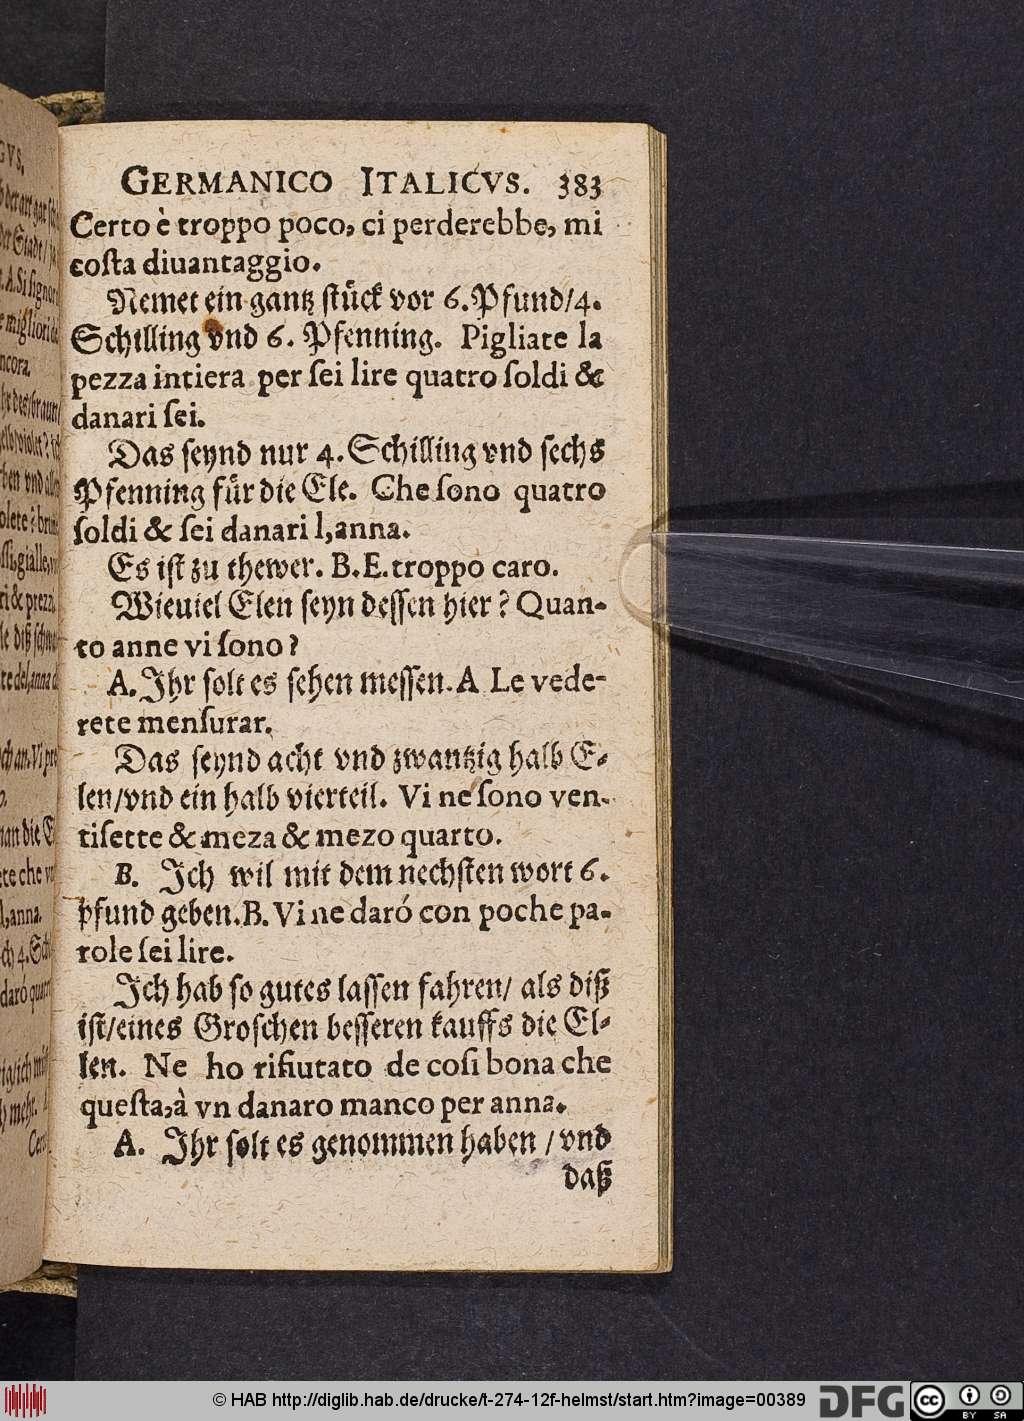 GERMANICO ITALICVS. 383
Certo è troppo poco, ci perderebbe, mi
coſta diuantaggio.
Nemet ein gantz ſtück vor 6. Pfund/4.
Schilling vnd 6. Pfenning. Pigliate la
pezza intiera per ſei lire quatro ſoldi &
danari ſei.
Das ſeynd nur 4. Schilling vnd ſechs
Pfenning für die Ele. Che ſono quatro
ſoldi & ſei danari l,anna.
Es iſt zu thewer. B.E. troppo caro.
Wieuiel Elen ſeyn deſſen hier? Quan-
to anne vi ſono?
A. Ihr ſolt es ſehen meſſen. A Le vede-
rete menſurar.
Das ſeynd acht vnd zwantzig halb E-
len/vnd ein halb vierteil. Vi ne ſono ven-
tiſette & meza & mezo quarto.
B. Ich wil mit dem nechſten wort 6.
pfund geben. B. Vi ne daró con poche pa-
role ſei lire.
Ich hab ſo gutes laſſen fahren/ als diß
iſt/eines Groſchen beſſeren kauffs die El-
len. Ne ho rifiutato de coſi bona che
queſta, à vn danaro manco per anna.
A. Ihr ſolt es genommen haben / vnd
daß
© HAB http://diglib.hab.de/drucke/t-274-12f-helmst/start.htm?image=00389
DFG
cc
BY SA